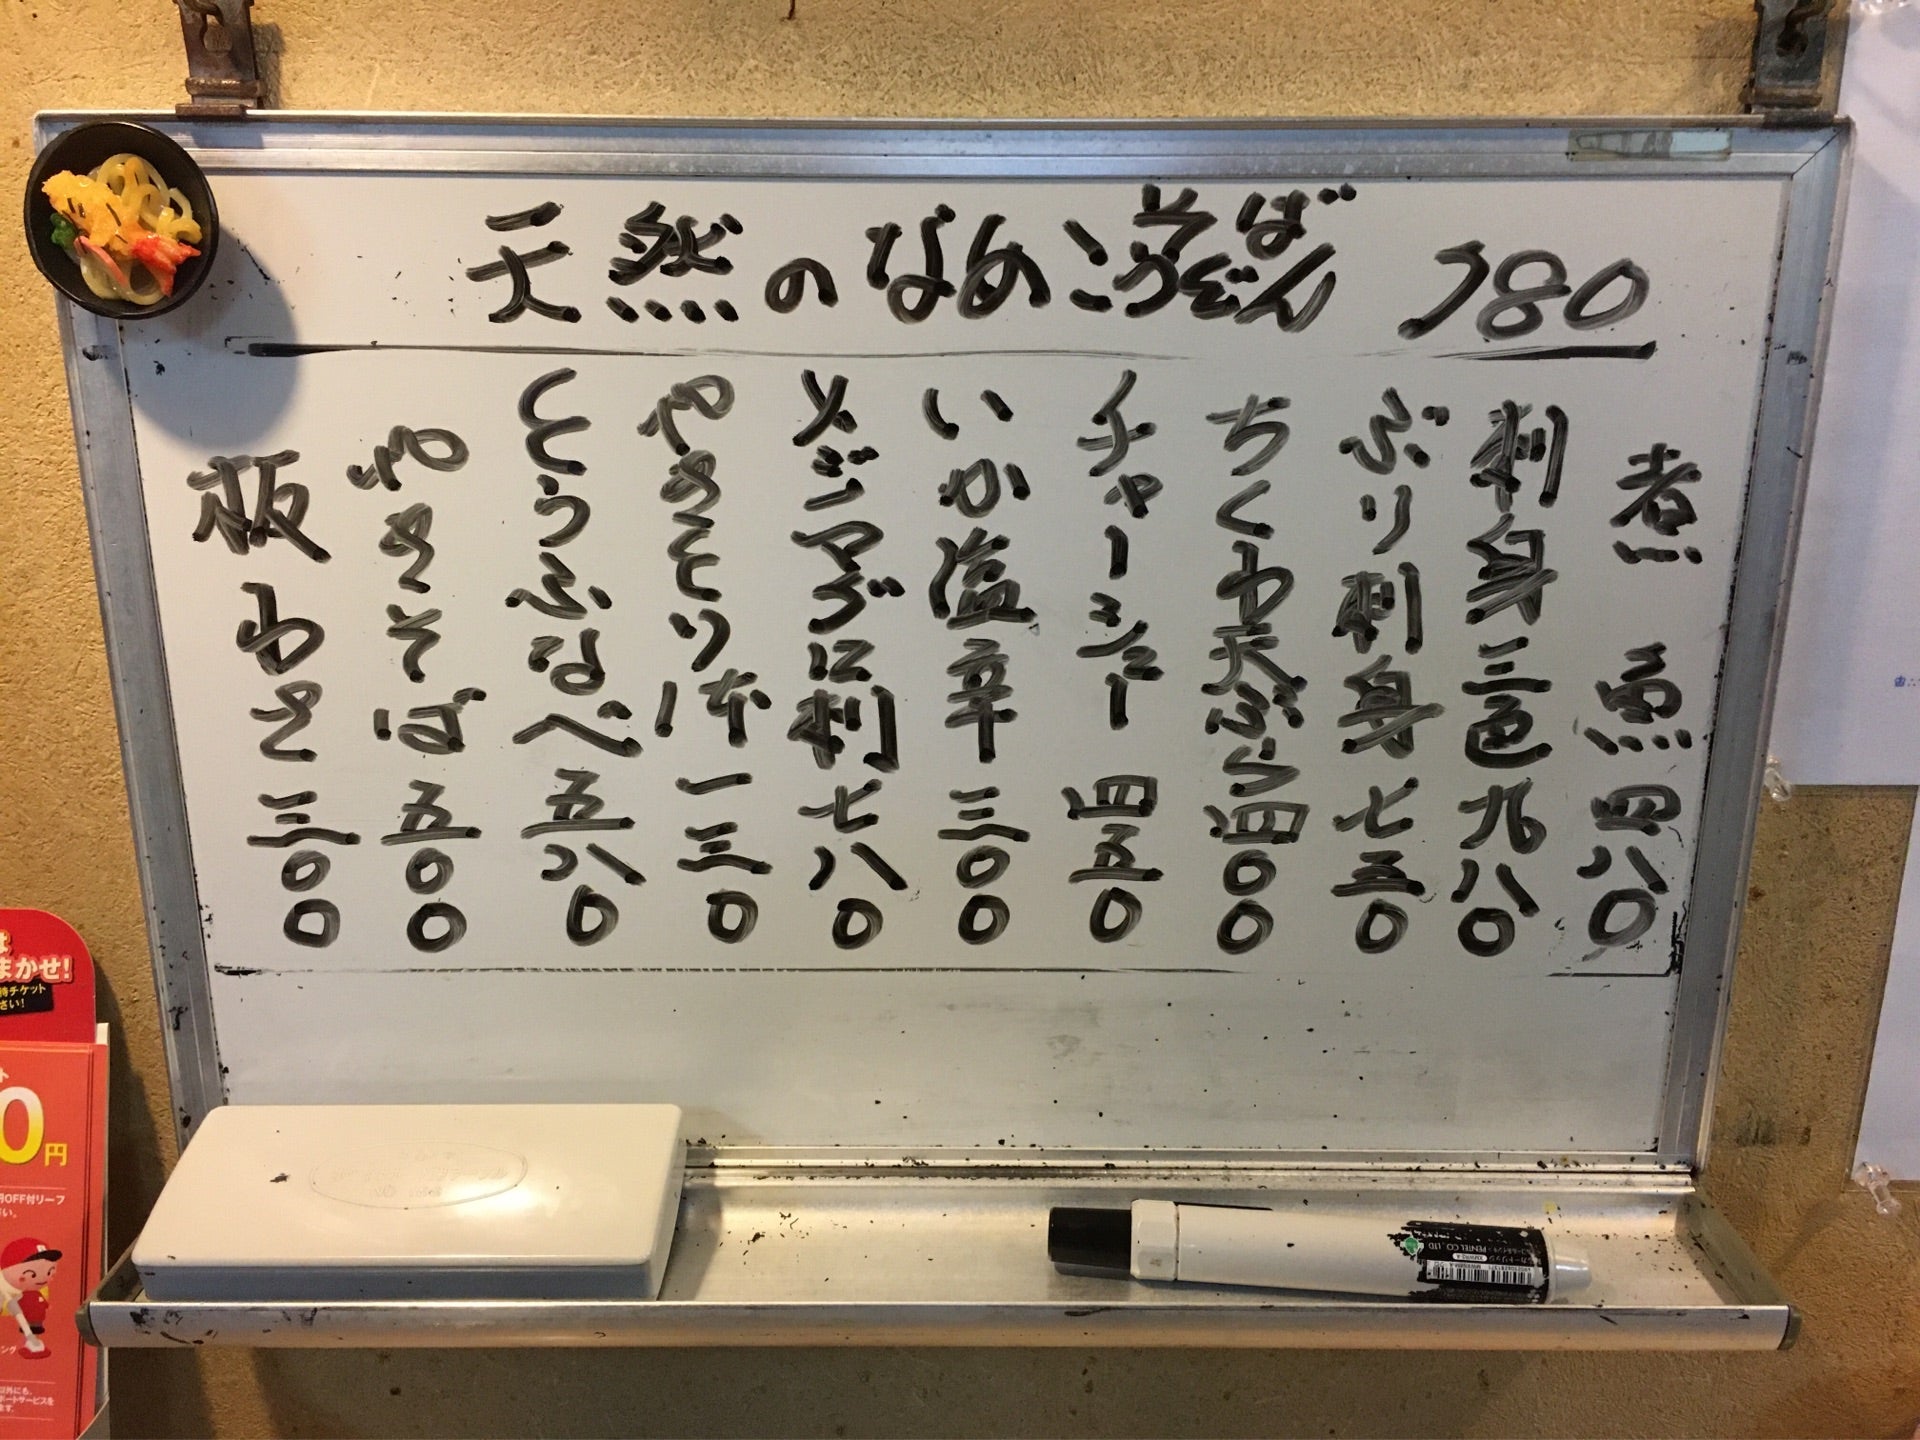 天然のなめこそばうどん 780
煮魚 四八〇
刺身三色 九八〇
ぶり刺身 七五〇
ちくわ天ぷら 四〇〇
チャーシュー 四五〇
いか塩辛 三〇〇
メジマグロ刺 七八〇
やきとり1本 一三〇
とうふなべ 五八〇
やきそば 五〇〇
板わさ 三〇〇
まかせ!
待チケット
さい!
0円
円OFF付リーフ
PENTEL CO., LTD.